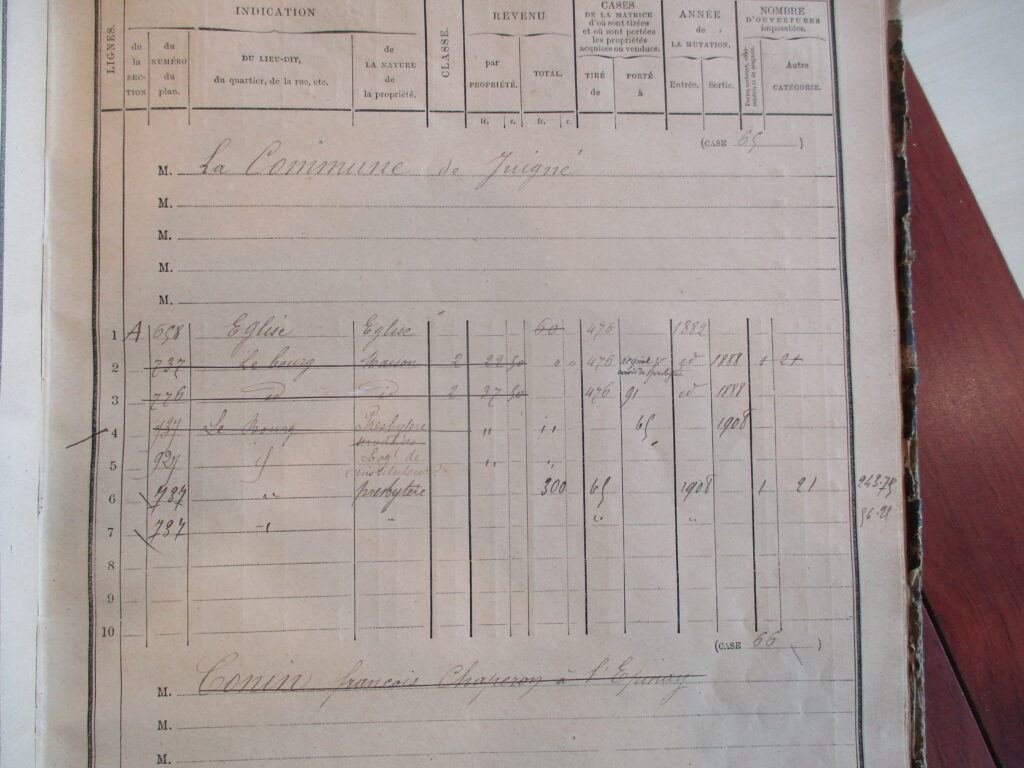 LIGNES. INDICATION CLASSE. REVENU CASES DE LA MATRICE d'où sont tirées et où sont portées les propriétés acquises ou vendues. ANNÉE de LA MUTATION, NOMBRE D'OUVERTURES imposables.
de la SEC-TION du NUMÉRO du plan. DU LIEU-DIT, du quartier, de la rue, etc. de LA NATURE de la propriété. par PROPRIÉTÉ. TOTAL. TIRÉ de PORTÉ à Entrée. Sortie. Autre CATÉGORIE.
fr. c. fr. c.
(CASE 65 )
M. La Commune de Juigné
M.
M.
M.
M.
1 A 658 Eglise Eglise 60 476 1882
2 737 Le bourg Maison 2 22 50 " " 476 id 1888 1 21
3 776 id id 2 37 50 476 91 id 1881
4 787 Le Bourg Presbytère " " 65 1908
5 927 Log. de " "
6 787 " presbytère 300 65 1908 1 21 243-75
7 787 " " " " 56-25
8
9
10
(CASE 66 )
M. Conin françois Chaperon à l'Epinay
M.
M.